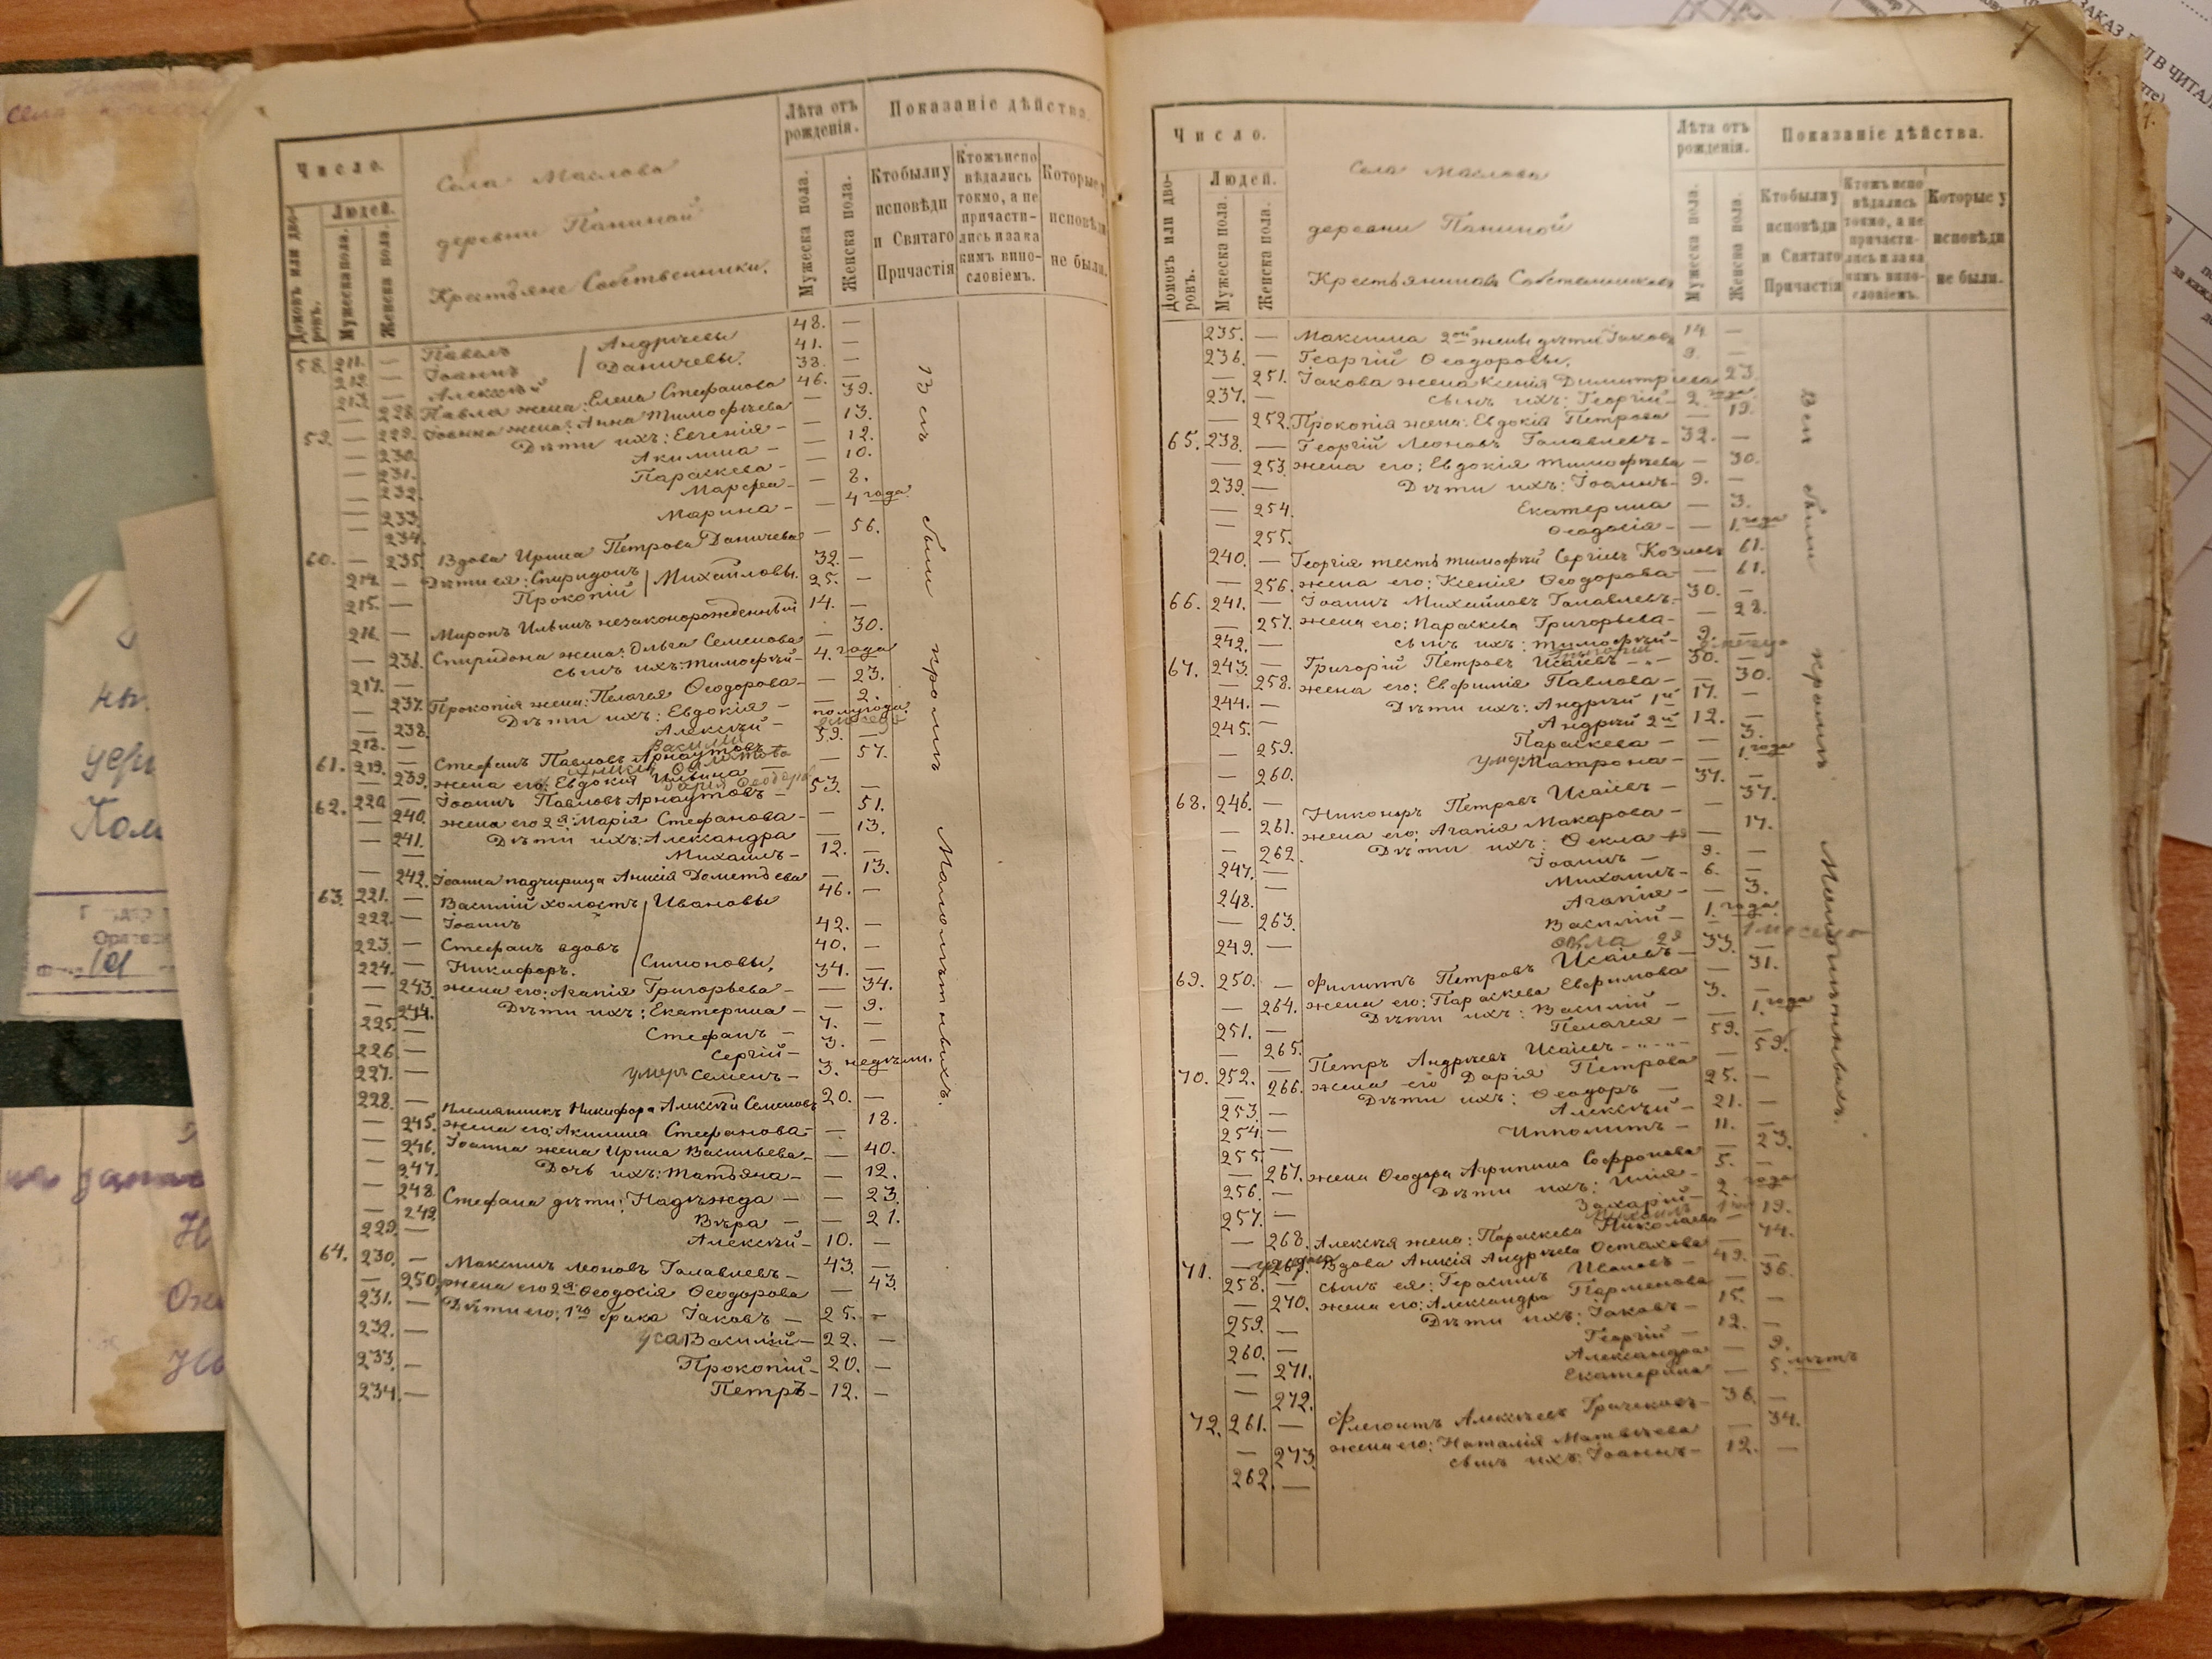 Число.
Домовъ или дворовъ.
Людей.
Мужеска пола.
Женска пола.
Села Маслова
деревни Паниной
Крестьяне Собственники.
Лѣта отъ рожденія.
Мужеска пола.
Женска пола.
Показаніе дѣйства.
Кто были у исповѣди и Святаго Причастія
Кто жъ исповѣдались токмо, а не причастились и за каким винословіемъ.
Которые у исповѣди не были.
58. 211. — Павелъ Андрѣевы 48. —
212. — Іоаннъ Даничевы. 41. —
213. — Алексѣй 38. —
— 228. Павла жена: Елена Стефанова 46.
59. — 229. Іоанна жена: Анна Тимофѣева — 39.
— 230. Дѣти ихъ: Евгенія — 13.
— 231. Акилина — 12.
— 232. Параскева — 10.
— 233. Марфа — 8.
— 234. Марина — 4 года
60. — 235. Вдова Ирина Петрова Даничева — 56.
214. — Дѣти ея: Спиридонъ Михайловы. 32. —
215. — Прокопій 25. —
216. — Миронъ Ильинъ незаконорожденный 14. —
— 236. Спиридона жена: Ольга Семенова — 30.
217. — сынъ ихъ: Тимофѣй — 4. года
— 237. Прокопія жена: Пелагея Ѳеодорова — 23.
— 238. Дѣти ихъ: Евдокія — 2.
218. — Алексѣй — полугода.
61. 219. — Стефанъ Павловъ Арнаутовъ 59. —
— 239. жена его: Евдокія Ильина — 57.
62. 220. — Іоаннъ Павловъ Арнаутовъ — 53. —
— 240. жена его 2я: Марія Стефанова — 51.
— 241. Дѣти ихъ: Александра — 13.
— Михаилъ — 12. —
— 242. Іоанна падчирица Анисія Дометьева — 13.
63. 221. — Василій холостъ Ивановы 46. —
222. — Іоаннъ 42. —
223. — Стефанъ вдовъ 40. —
224. — Никифоръ. Симоновы. 34. —
— 243. жена его: Агапія Григорьева — 34.
— 244. Дѣти ихъ: Екатерина — 9.
225. — Стефанъ — 7. —
226. — Сергій — 3. —
227. — умеръ Семенъ — 3. недѣли.
228. — Племянникъ Никифора Алексѣй Семеновъ 20. —
— 245. жена его: Акилина Стефанова — 18.
— 246. Іоанна жена Ирина Васильева — 40.
— 247. Дочь ихъ: Татьяна — 12.
— 248. Стефана дѣти: Надежда — 23.
— 249. Вѣра — 21.
229. — Алексѣй — 10. —
64. 230. — Максимъ Леоновъ Галавлевъ — 43. —
— 250. жена его 2я Ѳеодосія Ѳеодорова — 43.
231. — Дѣти его: 1го брака Іаковъ — 25. —
232. — Василій — 22. —
233. — Прокопій — 20. —
234. — Петръ — 12. —
Всѣ были кромѣ Малолѣтныхъ.
7
Число.
Домовъ или дворовъ.
Людей.
Мужеска пола.
Женска пола.
Села Маслова
деревни Паниной
Крестьянинов Собственников
Лѣта отъ рожденія.
Мужеска пола.
Женска пола.
Показаніе дѣйства.
Кто были у исповѣди и Святаго Причастія
Кто жъ исповѣдались токмо, а не причастились и за каким винословіемъ.
Которые у исповѣди не были.
235. — Максима 2ой жены дѣти: Іаковъ 14. —
236. — Георгій Ѳеодоровы. 9. —
— 251. Іакова жена Ксенія Димитріева 23
237. — сынъ ихъ: Георгій — 2. года
— 252. Прокопія жена: Евдокія Петрова — 19.
65. 238. — Георгій Леоновъ Галавлевъ — 32. —
— 253. жена его: Евдокія Тимофѣева — 30.
239. — Дѣти ихъ: Іоаннъ — 9. —
— 254. Екатерина — 3.
— 255. Ѳеодосія — 1. года
240. — Георгія тесть Тимофѣй Сергіевъ Козловъ 61.
— 256. жена его: Ксенія Ѳеодорова — 61.
66. 241. — Іоаннъ Михайловъ Галавлевъ. 30. —
— 257. жена его: Параскева Григорьева — 28.
242. — сынъ ихъ: Тимофѣй — 9. —
67. 243. — Григорій Петровъ Исаевъ — 30. —
— 258. жена его: Евфимія Павлова — 30.
244. — Дѣти ихъ: Андрѣй 1й 17. —
245. — Андрѣй 2й 12. —
— 259. Параскева — 3.
— 260. Матрона — 1. года
68. 246. — Никоноръ Петровъ Исаевъ — 37. —
— 261. жена его: Агапія Макарова — 37.
— 262. Дѣти ихъ: Ѳекла — 17.
247. — Іоаннъ — 9. —
248. — Михаилъ — 6. —
— 263. Агапія — 3.
249. — Василій — 1. года
69. 250. — Филиппъ Петровъ Исаевъ — 33. —
— 264. жена его: Параскева Евфимова — 31.
251. — Дѣти ихъ: Василій — 3. —
— 265. Пелагея — 1. года
70. 252. — Петръ Андрѣевъ Исаевъ — 59. —
— 266. жена его Дарія Петрова — 59.
253. — Дѣти ихъ: Ѳеодоръ — 25. —
254. — Алексѣй — 21. —
255. — Ипполитъ — 11. —
— 267. жена Ѳеодора Агрипина Софронова — 23.
256. — Дѣти ихъ: Илія — 5. —
257. — Захарій — 2. года
— 268. Алексѣя жена: Параскева Николаева — 19.
71. — 269. Вдова Анисія Андрѣева Остахова — 74.
258. — сынъ ея: Герасимъ Ивановъ — 49. —
— 270. жена его: Александра Парменова — 36.
259. — Дѣти ихъ: Іаковъ — 15. —
260. — Георгій — 12. —
— 271. Александра — 9.
— 272. Екатерина — 5 лѣтъ
72. 261. — Флегонтъ Алексѣевъ Грачековъ — 36. —
— 273. жена его: Наталія Матвѣева — 34.
262. — сынъ ихъ: Іоаннъ — 12. —
Всѣ были кромѣ Малолѣтныхъ.